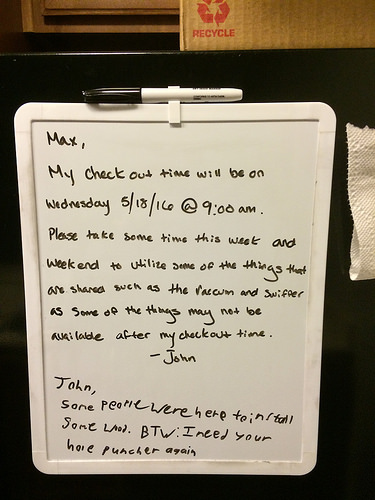 RECYCLE
Max,
My check out time will be on
Wednesday 5/18/16 @ 9:00 am.
Please take some time this week and
weekend to utilize some of the things that
are shared such as the vaccum and swiffer
as some of the things may not be
available after my checkout time.
- John
John,
Some people were here to install
Some
BTW: I need your
hole puncher again